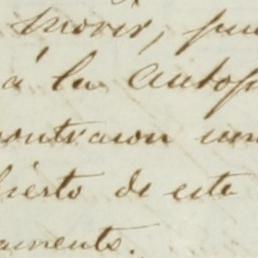 morir, pue
á la autop
contraron un
bierto de este
amento.